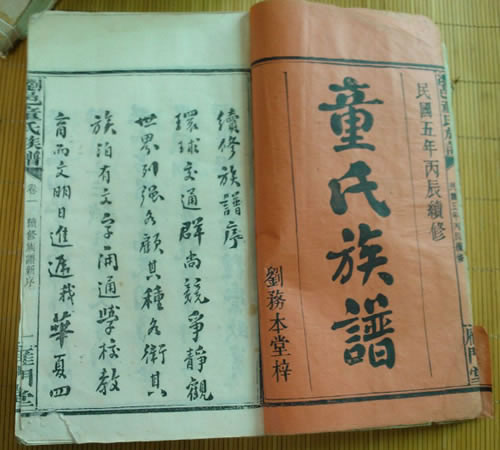 民國五年丙辰續修
童氏族譜
劉務本堂梓
續修族譜序
環球交通群尚競爭靜觀
世界列强各顧其種各衛其
族洎有文字開通學校教
育而文明日進哉華夏四
瀏邑童氏族譜
卷一
續修族譜新序
一
雁門堂